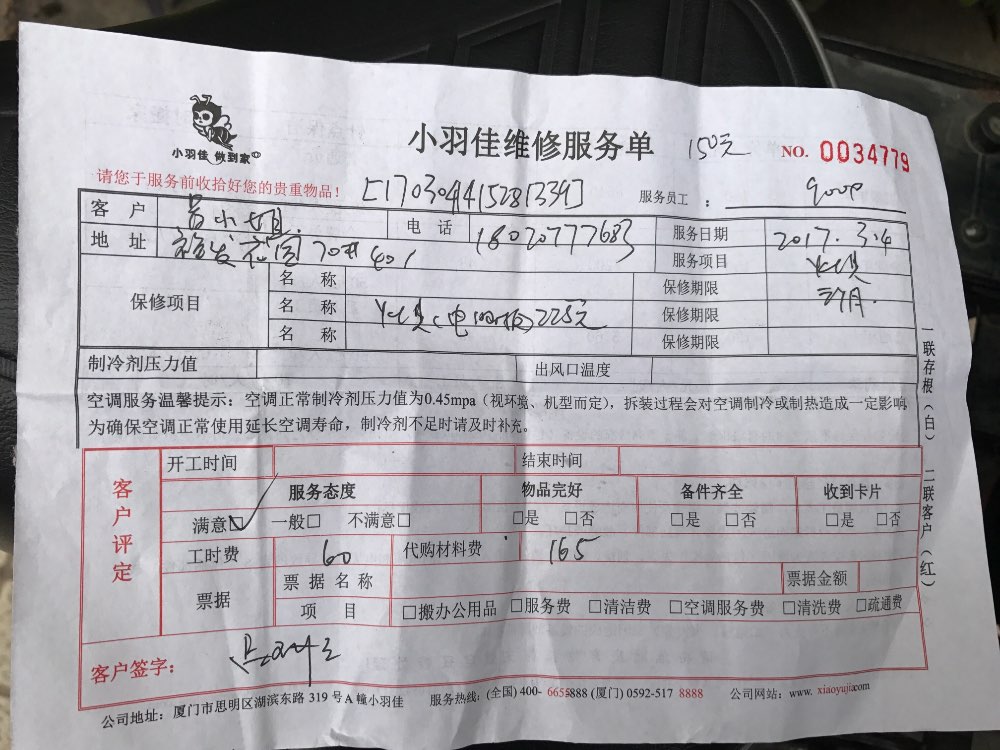 小羽佳 做到家
小羽佳维修服务单 150元 NO. 0034779
请您于服务前收拾好您的贵重物品！ 服务员工：
客 户 吕小姐. 电 话 服务日期 2017.3.4
地 址 70# 401 服务项目
保修项目 名 称 保修期限
名 称 225元 保修期限
名 称 保修期限
制冷剂压力值 出风口温度
空调服务温馨提示：空调正常制冷剂压力值为0.45mpa（视环境、机型而定），拆装过程会对空调制冷或制热造成一定影响
为确保空调正常使用延长空调寿命，制冷剂不足时请及时补充。
一联存根（白） 二联客户（红）
客户评定
开工时间 结束时间
服务态度 物品完好 备件齐全 收到卡片
满意☑ 一般□ 不满意□ □是 □否 □是 □否 □是 □否
工时费 60 代购材料费 165
票据 票据名称 票据金额
项 目 □搬办公用品 □服务费 □清洁费 □空调服务费 □清洗费 □疏通费
客户签字：
公司地址：厦门市思明区湖滨东路 319 号 A 幢小羽佳 服务热线：(全国) 400- 6655888 (厦门) 0592-517 8888 公司网站：www. xiaoyujia.com